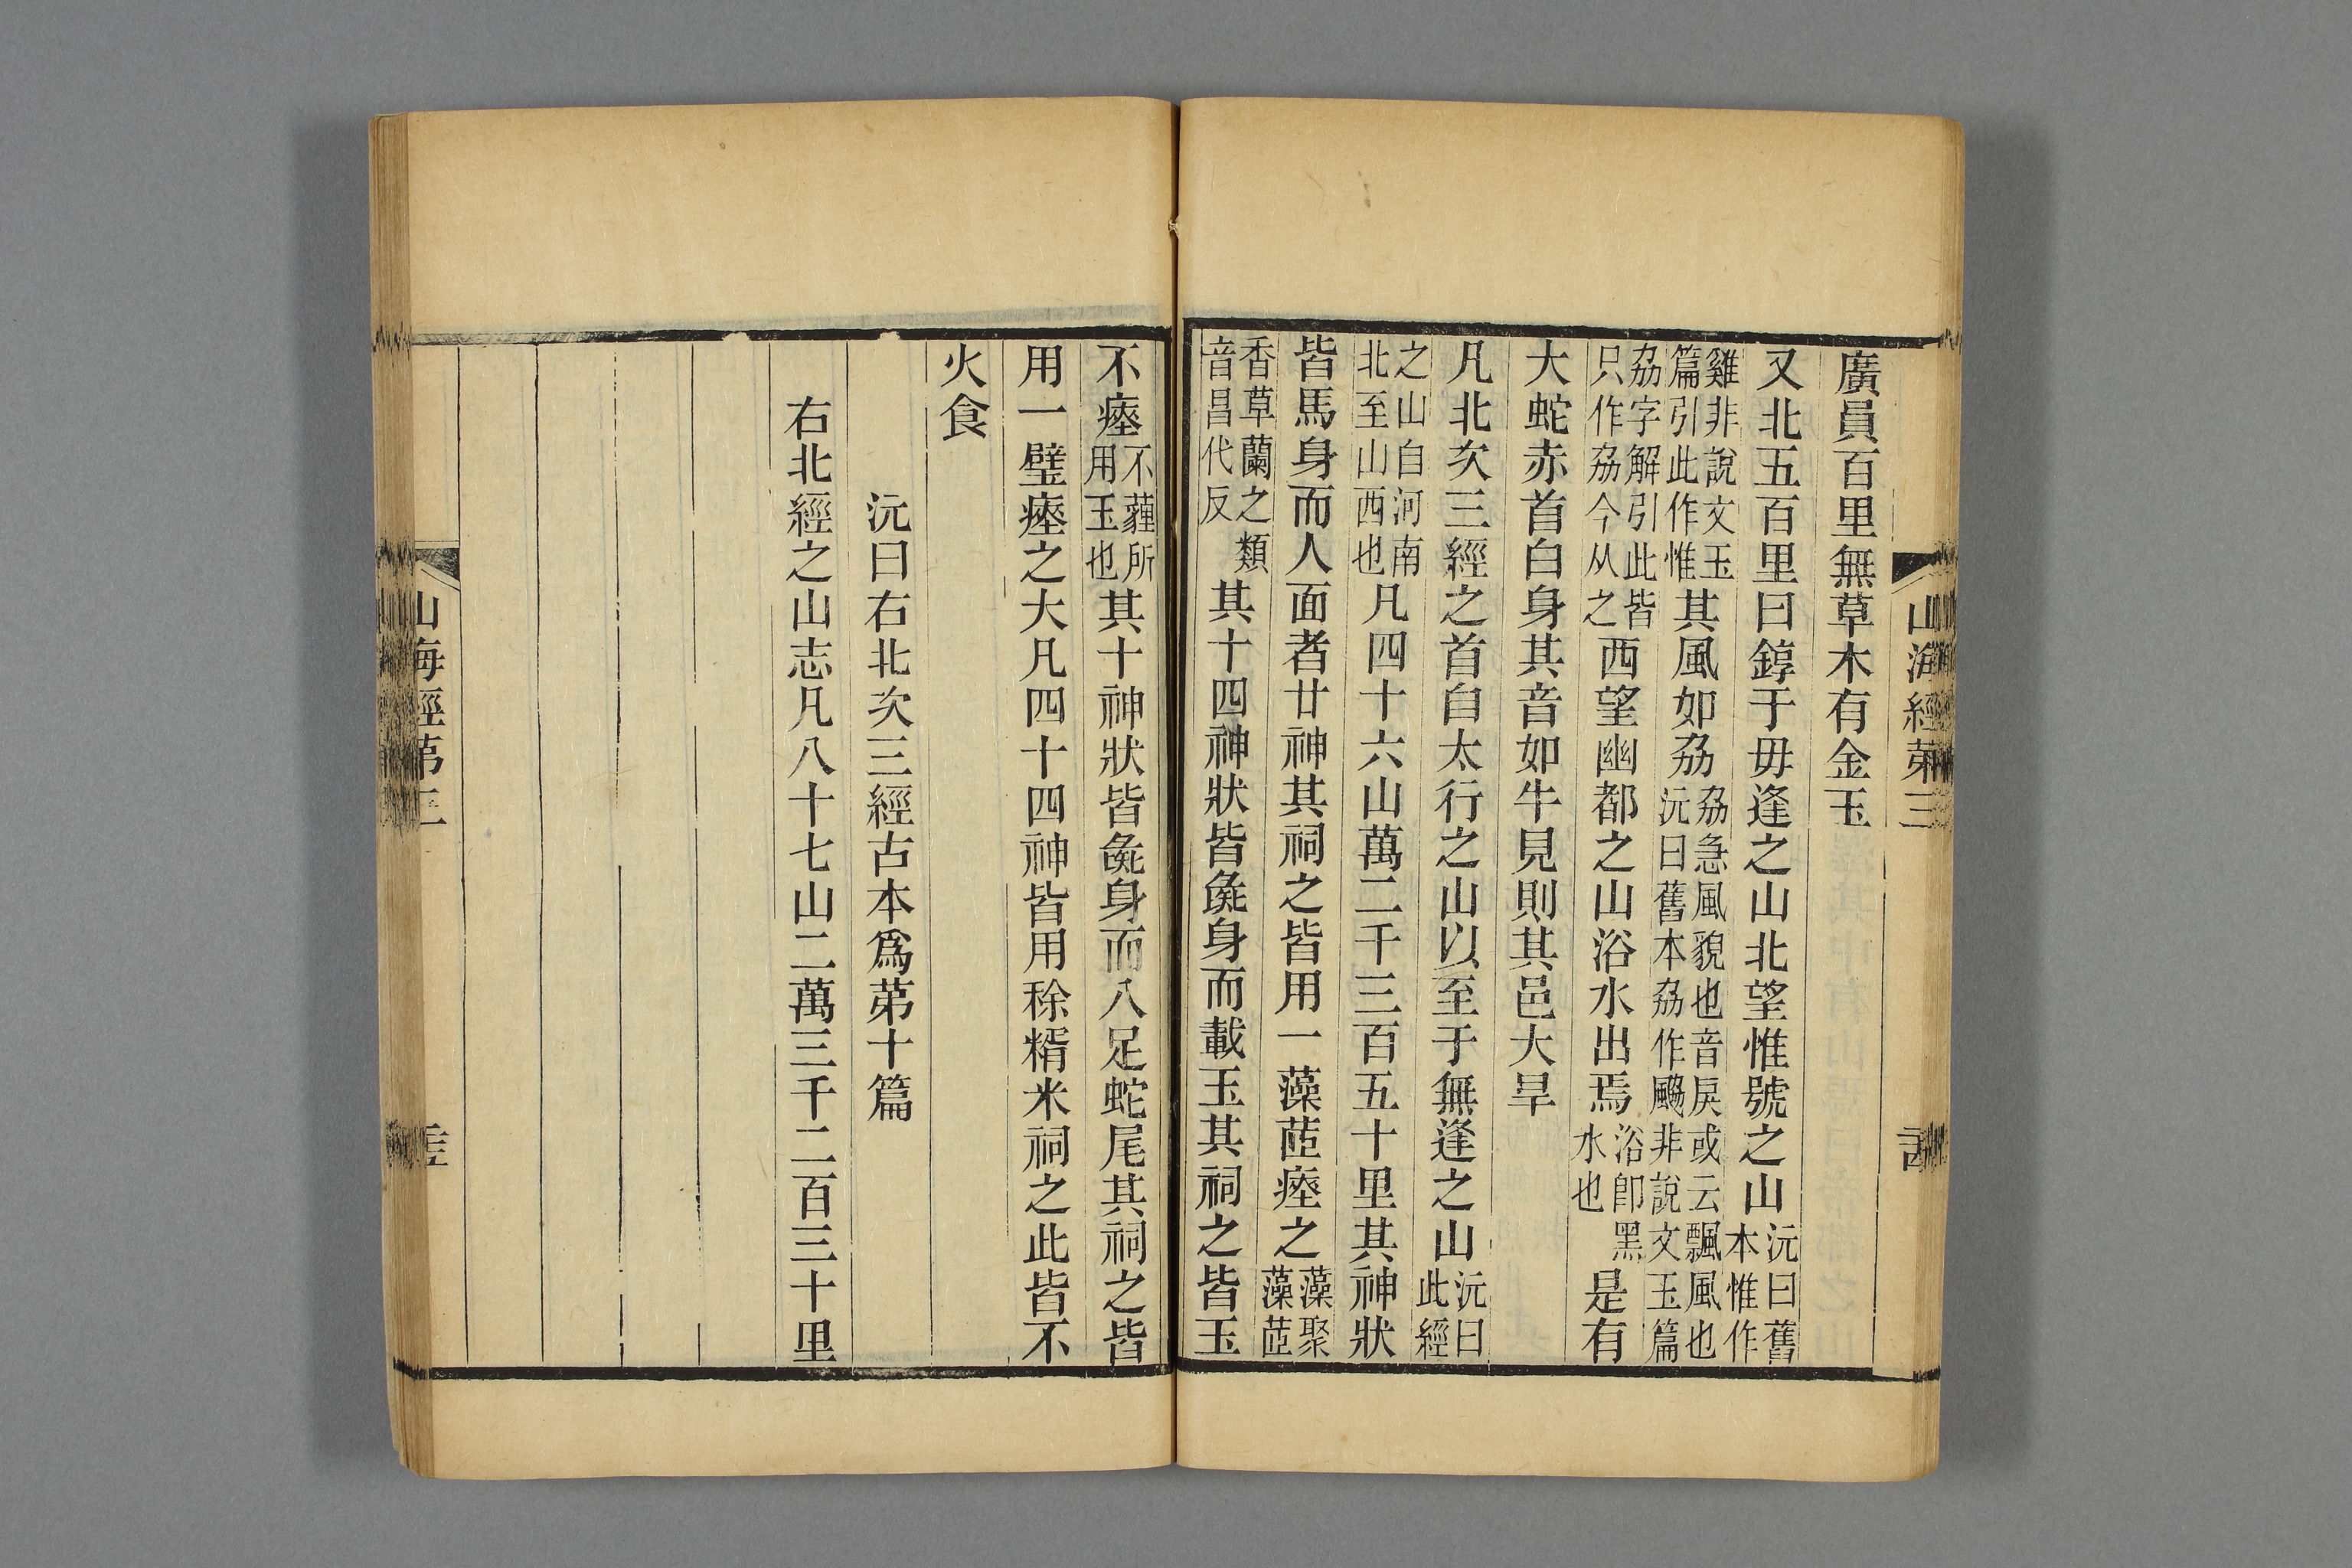 山海經第三
廣員百里無草木有金玉
又北五百里曰錞于毋逢之山北望惟號之山沅曰舊本惟作
雞非說文玉篇引此作惟其風如劦劦急風貌也音戾或云飄風也沅曰舊本劦作颺非說文玉篇
劦字解引此皆只作劦今从之西望幽都之山浴水出焉浴卽黑水也是有
大蛇赤首白身其音如牛見則其邑大旱
凡北次三經之首自太行之山以至于無逢之山沅曰此經
之山自河南北至山西也凡四十六山萬二千三百五十里其神狀
皆馬身而人面者廿神其祠之皆用一藻茝瘞之藻聚藻茝
香草蘭之類音昌代反其十四神狀皆彘身而載玉其祠之皆玉
不瘞不薶所用玉也其十神狀皆彘身而八足蛇尾其祠之皆
用一璧瘞之大凡四十四神皆用稌糈米祠之此皆不
火食
沅曰右北次三經古本爲第十篇
右北經之山志凡八十七山二萬三千二百三十里
山海經第三